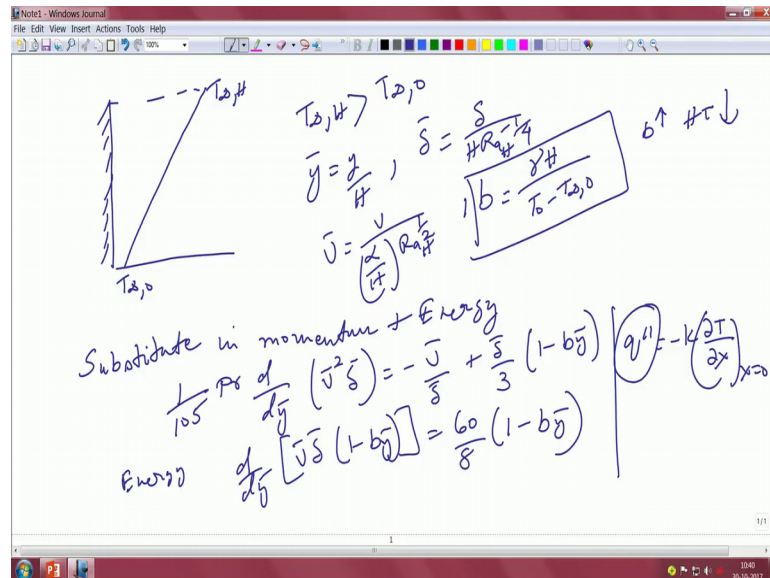 Note1 - Windows Journal
File Edit View Insert Actions Tools Help
100%
T∞,H
T∞,H > T∞,0
b↑ HT↓
ȳ = y/H , δ̄ = δ/(H Ra_H^(-1/4))
v̄ = v/((α/H) Ra_H^(1/2)) , b = γH/(T0 - T∞,0)
T∞,0
Substitute in momentum + Energy
1/105 Pr d/dȳ (v̄² δ̄) = - v̄/δ̄ + δ̄/3 (1-bȳ)
q'' = -k (∂T/∂x)x=0
Energy d/dȳ [v̄ δ̄ (1-bȳ)] = 60/8 (1-bȳ)
1/1
1
10:40
30-10-2017